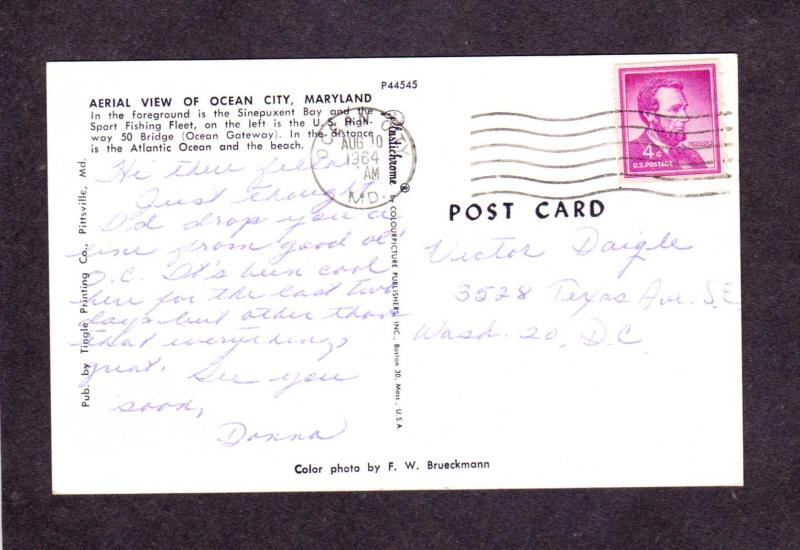 P44545
AERIAL VIEW OF OCEAN CITY, MARYLAND
In the foreground is the Sinepuxent Bay and the
Sport Fishing Fleet, on the left is the U.S. High-
way 50 Bridge (Ocean Gateway). In the distance
is the Atlantic Ocean and the beach.
Pub. by Tingle Printing Co., Pittsville, Md.
He there fella
Just thought
I'd drop you a
line from good ol'
O.C. It's been cool
here for the last two
days but other than
that everythings
great. See you
soon,
Donna
OCEAN CITY
AUG 10
1964
AM
MD.
Plastichrome ®
by COLOURPICTURE PUBLISHERS, INC., Boston 30, Mass., U.S.A.
LINCOLN
4¢
U.S. POSTAGE
POST CARD
Victor Daigle
3528 Texas Ave. S.E
Wash. 20, D.C.
Color photo by F. W. Brueckmann